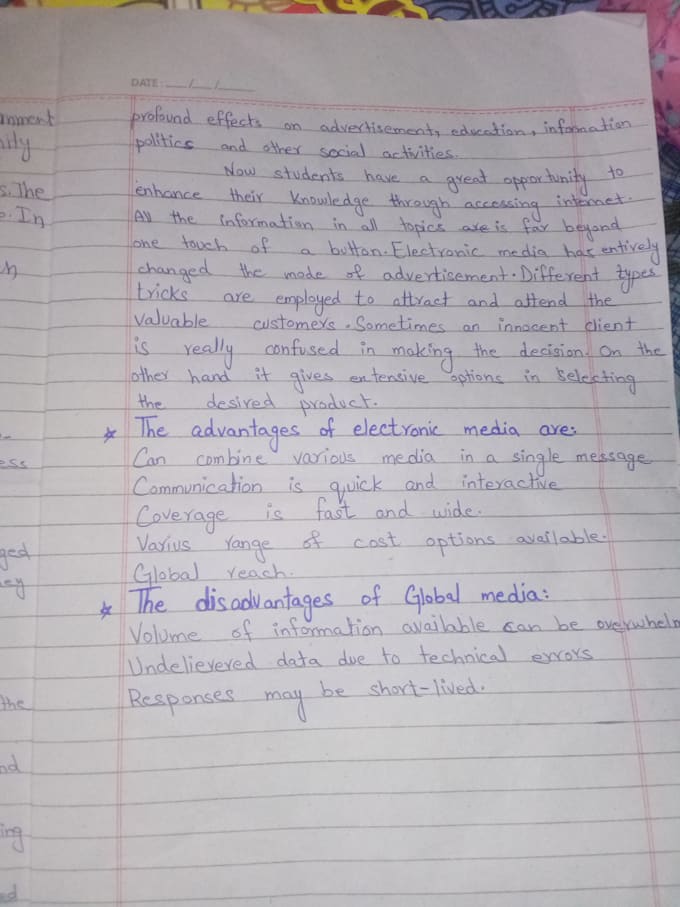 DATE: __/__/__
profound effects on advertisement, education, information
politics and other social activities.
Now students have a great opportunity to
enhance their Knowledge through accessing internet.
All the information in all topics are is far beyond
one touch of a button. Electronic media has entirely
changed the mode of advertisement. Different types
tricks are employed to attract and attend the
valuable customers. Sometimes an innocent client
is really confused in making the decision. On the
other hand it gives entensive options in Selecting
the desired product.
* The advantages of electronic media are:
Can combine various media in a single message
Communication is quick and interactive
Coverage is fast and wide.
Varius range of cost options available.
Global reach.
* The disadvantages of Global media:
Volume of information available can be overwhelm
Undelievered data due to technical errors
Responses may be short-lived.
s. The
. In
ess
ged
ey
the
nd
ing
ed